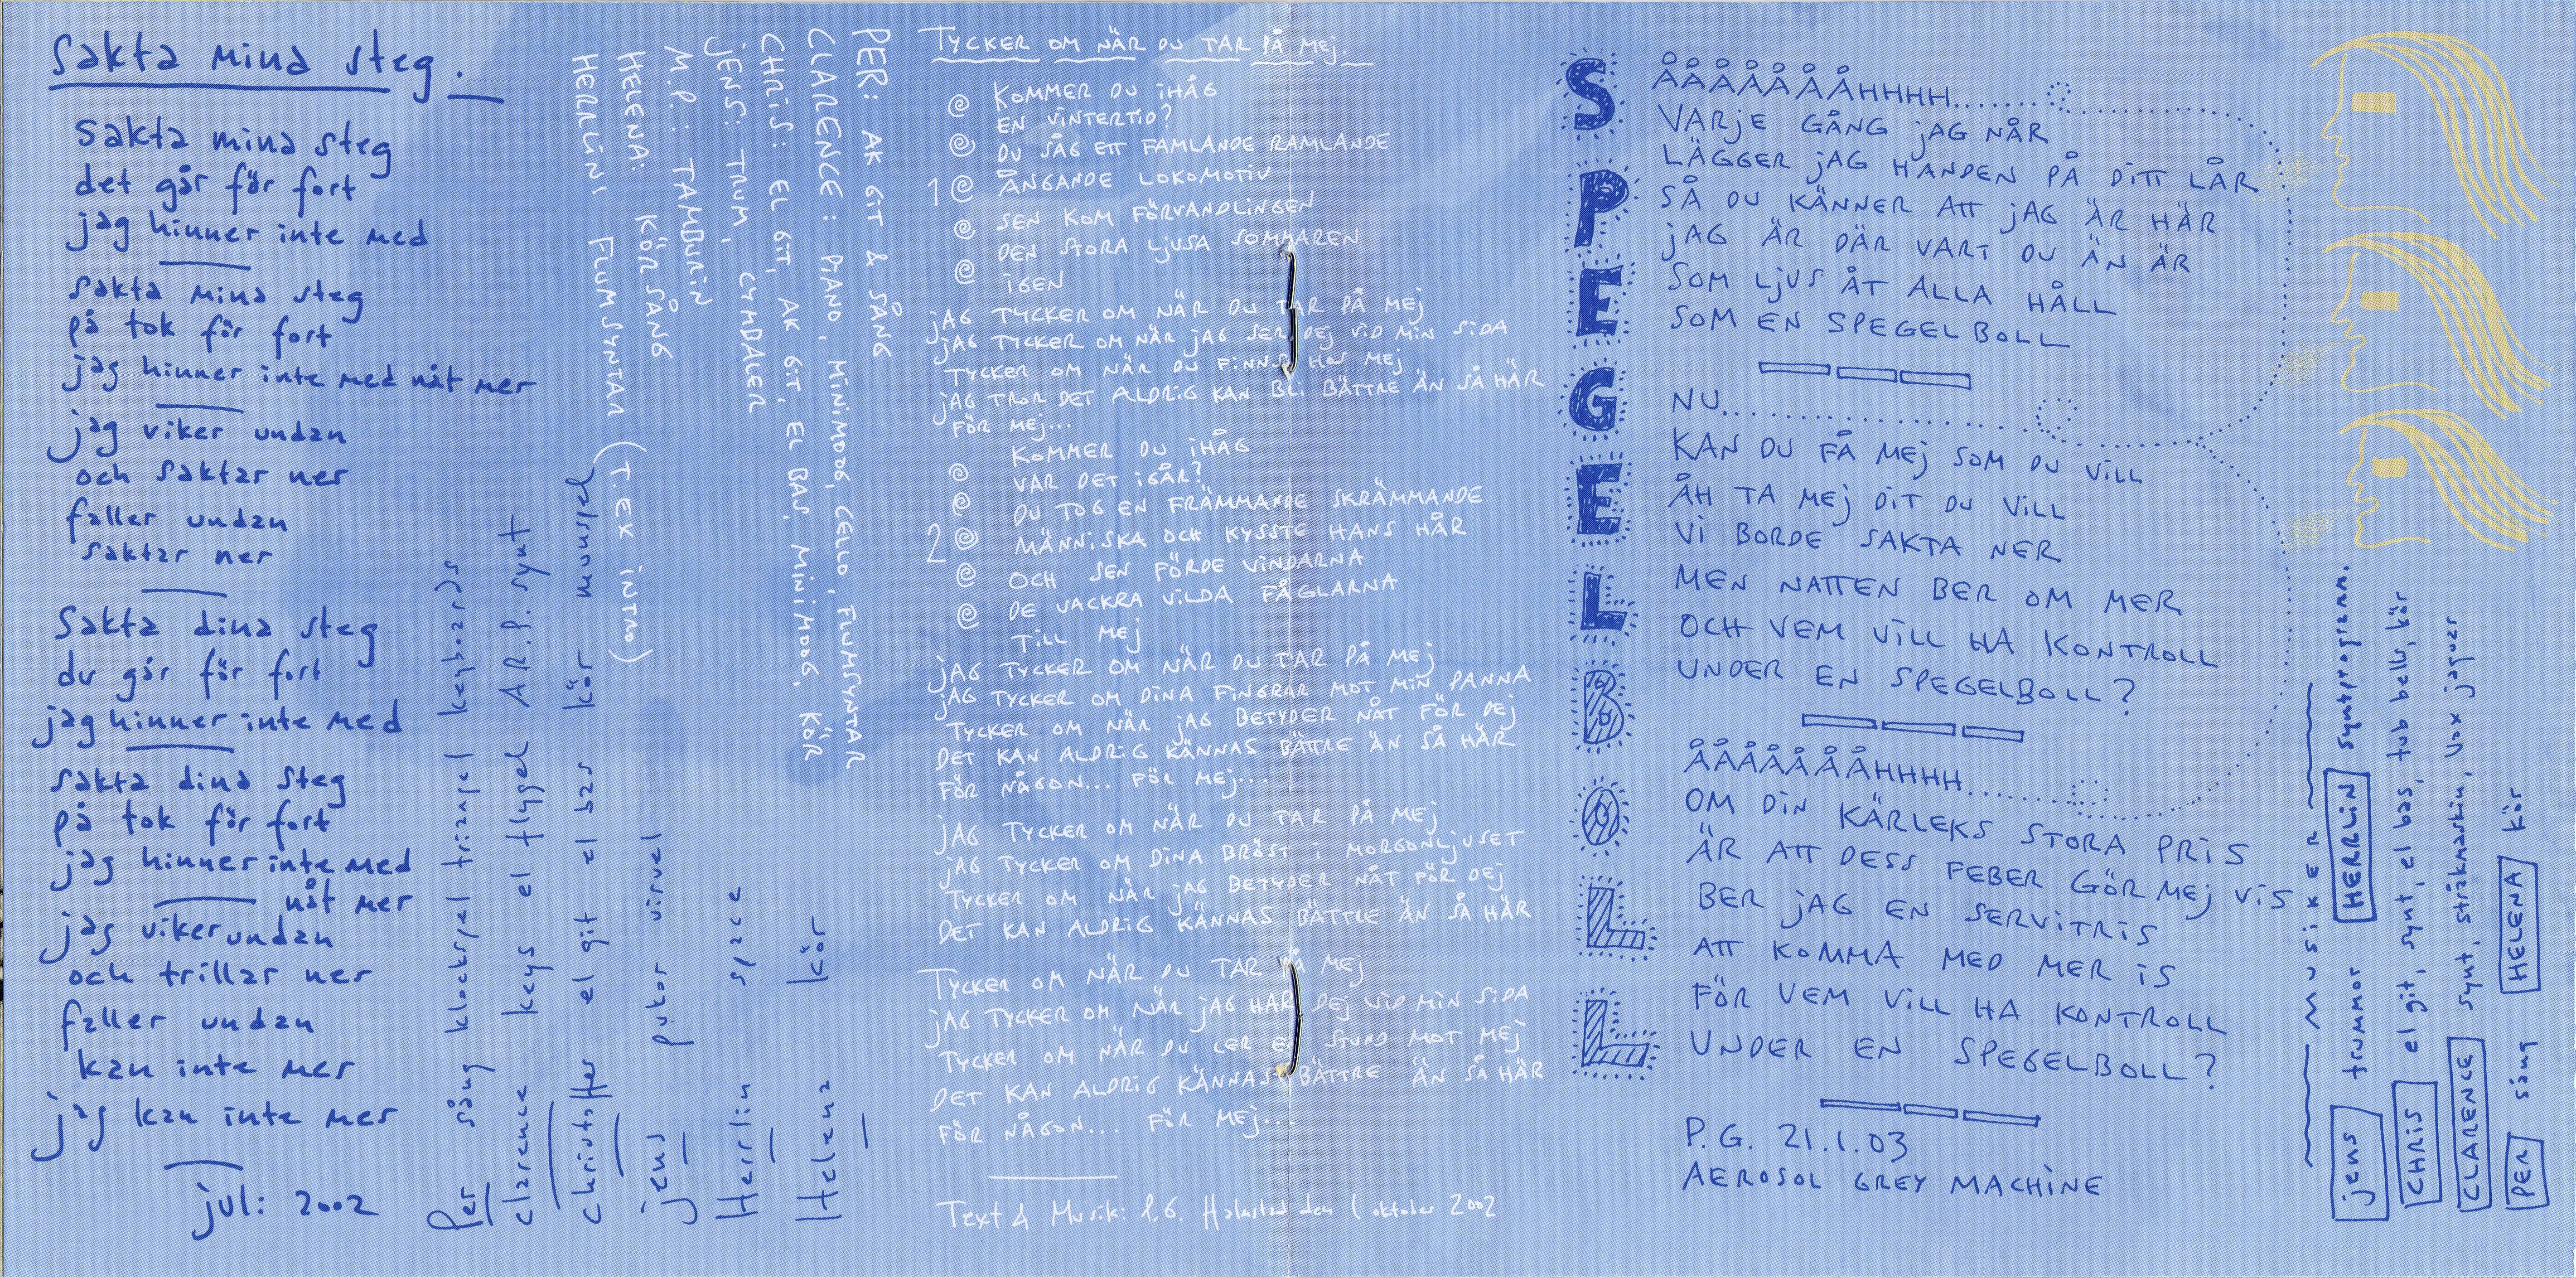 Sakta mina steg.
Sakta mina steg
det går för fort
jag hinner inte med
Sakta mina steg
på tok för fort
jag hinner inte med nåt mer
jag viker undan
och saktar ner
faller undan
saktar ner
Sakta dina steg
du går för fort
jag hinner inte med
Sakta dina steg
på tok för fort
jag hinner inte med
nåt mer
jag viker undan
och trillar ner
faller undan
kan inte mer
jag kan inte mer
juli 2002
Per sång klockspel triangel keyboards
clarence keys el flygel A.R.P. synt
christoffer el git el bas kör munspel
jens pukor virvel
Herrlin space
Helena kör
PER: AK GIT & SÅNG
CLARENCE: PIANO, MINIMOOG, CELLO, FLUMSYNTAR
CHRIS: EL GIT, AK GIT, EL BAS, MINIMOOG, KÖR
JENS: TRUM, CYMBALER
M.P.: TAMBURIN
HELENA: KÖRSÅNG
HERRLIN: FLUMSYNTAR (T.EX INTRO)
TYCKER OM NÄR DU TAR PÅ MEJ.
KOMMER DU IHÅG
EN VINTERTID?
DU SÅG ETT FAMLANDE RAMLANDE
1 ÅNGANDE LOKOMOTIV
SEN KOM FÖRVANDLINGEN
DEN STORA LJUSA SOMMAREN
IGEN
JAG TYCKER OM NÄR DU TAR PÅ MEJ
JAG TYCKER OM NÄR JAG SER DEJ VID MIN SIDA
TYCKER OM NÄR DU FINNS HOS MEJ
JAG TROR DET ALDRIG KAN BLI BÄTTRE ÄN SÅ HÄR
FÖR MEJ...
KOMMER DU IHÅG
VAR DET IGÅR?
DU TOG EN FRÄMMANDE SKRÄMMANDE
2 MÄNNISKA OCH KYSSTE HANS HÅR
OCH SEN FÖRDE VINDARNA
DE VACKRA VILDA FÅGLARNA
TILL MEJ
JAG TYCKER OM NÄR DU TAR PÅ MEJ
JAG TYCKER OM DINA FINGRAR MOT MIN PANNA
TYCKER OM NÄR JAG BETYDER NÅT FÖR DEJ
DET KAN ALDRIG KÄNNAS BÄTTRE ÄN SÅ HÄR
FÖR NÅGON... FÖR MEJ...
JAG TYCKER OM NÄR DU TAR PÅ MEJ
JAG TYCKER OM DINA BRÖST I MORGONLJUSET
TYCKER OM NÄR JAG BETYDER NÅT FÖR DEJ
DET KAN ALDRIG KÄNNAS BÄTTRE ÄN SÅ HÄR
TYCKER OM NÄR DU TAR PÅ MEJ
JAG TYCKER OM NÄR JAG HAR DEJ VID MIN SIDA
TYCKER OM NÄR DU LER EN STUND MOT MEJ
DET KAN ALDRIG KÄNNAS BÄTTRE ÄN SÅ HÄR
FÖR NÅGON... FÖR MEJ...
Text & Musik: P.G. Halmstad den 1 oktober 2002
SPEGELBOLL
ÅÅÅÅÅÅÅHHHH.......
VARJE GÅNG JAG NÅR
LÄGGER JAG HANDEN PÅ DITT LÅR
SÅ DU KÄNNER ATT JAG ÄR HÄR
JAG ÄR DÄR VART DU ÄN ÄR
SOM LJUS ÅT ALLA HÅLL
SOM EN SPEGELBOLL
NU...............
KAN DU FÅ MEJ SOM DU VILL
ÅH TA MEJ DIT DU VILL
VI BORDE SAKTA NER
MEN NATTEN BER OM MER
OCH VEM VILL HA KONTROLL
UNDER EN SPEGELBOLL?
ÅÅÅÅÅÅÅHHHH.......
OM DIN KÄRLEKS STORA PRIS
ÄR ATT DESS FEBER GÖR MEJ VIS
BER JAG EN SERVITRIS
ATT KOMMA MED MER IS
FÖR VEM VILL HA KONTROLL
UNDER EN SPEGELBOLL?
P.G. 21.1.03
AEROSOL GREY MACHINE
MUSIKER
jens trummor HERRLIN syntprogram.
CHRIS el git, synt, el bas, tub bells, kör
CLARENCE synt, stråkmaskin, Vox jaguar
PER sång HELENA kör